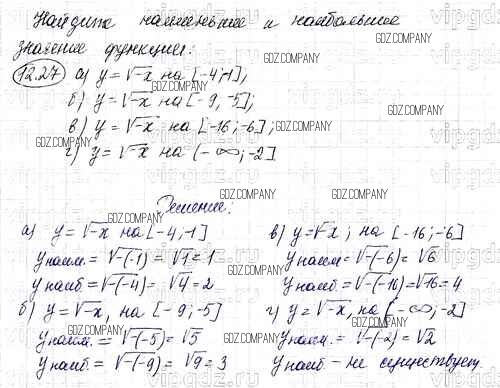 Найдите наименьшее и наибольшее
значение функции:
12.27 а) y = √-x на [-4;1],
б) y = √-x на [-9, -5];
в) y = √-x на [-16; -6];
г) y = √-x на (-∞; -2]
Решение:
а) y = √-x на [-4, -1]
y наим. = √-(-1) = √1 = 1
y наиб = √-(-4) = √4 = 2
б) y = √-x, на [-9; -5]
y наим. = √-(-5) = √5
y наиб = √-(-9) = √9 = 3
в) y = √-x; на [-16; -6]
y наим = √-(-6) = √6
y наиб = √-(-16) = √16 = 4
г) y = √-x, на [-∞; -2]
y наим. = √-(-2) = √2
y наиб - не существует.
GDZ.COMPANY
vipgdz.ru